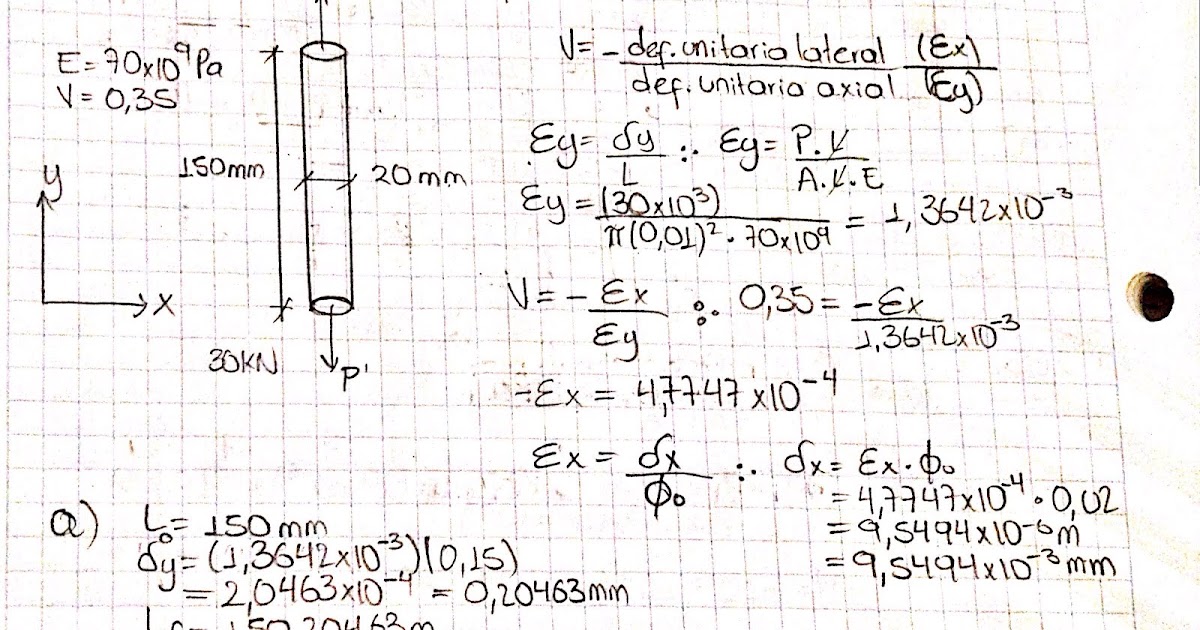 E = 70x10⁹Pa
V = 0,35
150mm
20mm
y
x
30KN
P'
V = - def. unitaria lateral (Ex) / def. unitaria axial (Ey)
Ey = δy / L ∴ Ey = P.L / A.L.E
Ey = (30x10³) / π(0,01)² · 70x10⁹ = 1,3642x10⁻³
V = - Ex / Ey ∴ 0,35 = -Ex / 1,3642x10⁻³
-Ex = 4,7747x10⁻⁴
Ex = δx / ϕ₀ ∴ δx = Ex · ϕ₀
= 4,7747x10⁻⁴ · 0,02
= 9,5494x10⁻⁶m
= 9,5494x10⁻³mm
a) L₀ = 150mm
δy = (1,3642x10⁻³)(0,15)
= 2,0463x10⁻⁴ = 0,20463mm
= 150,20463m